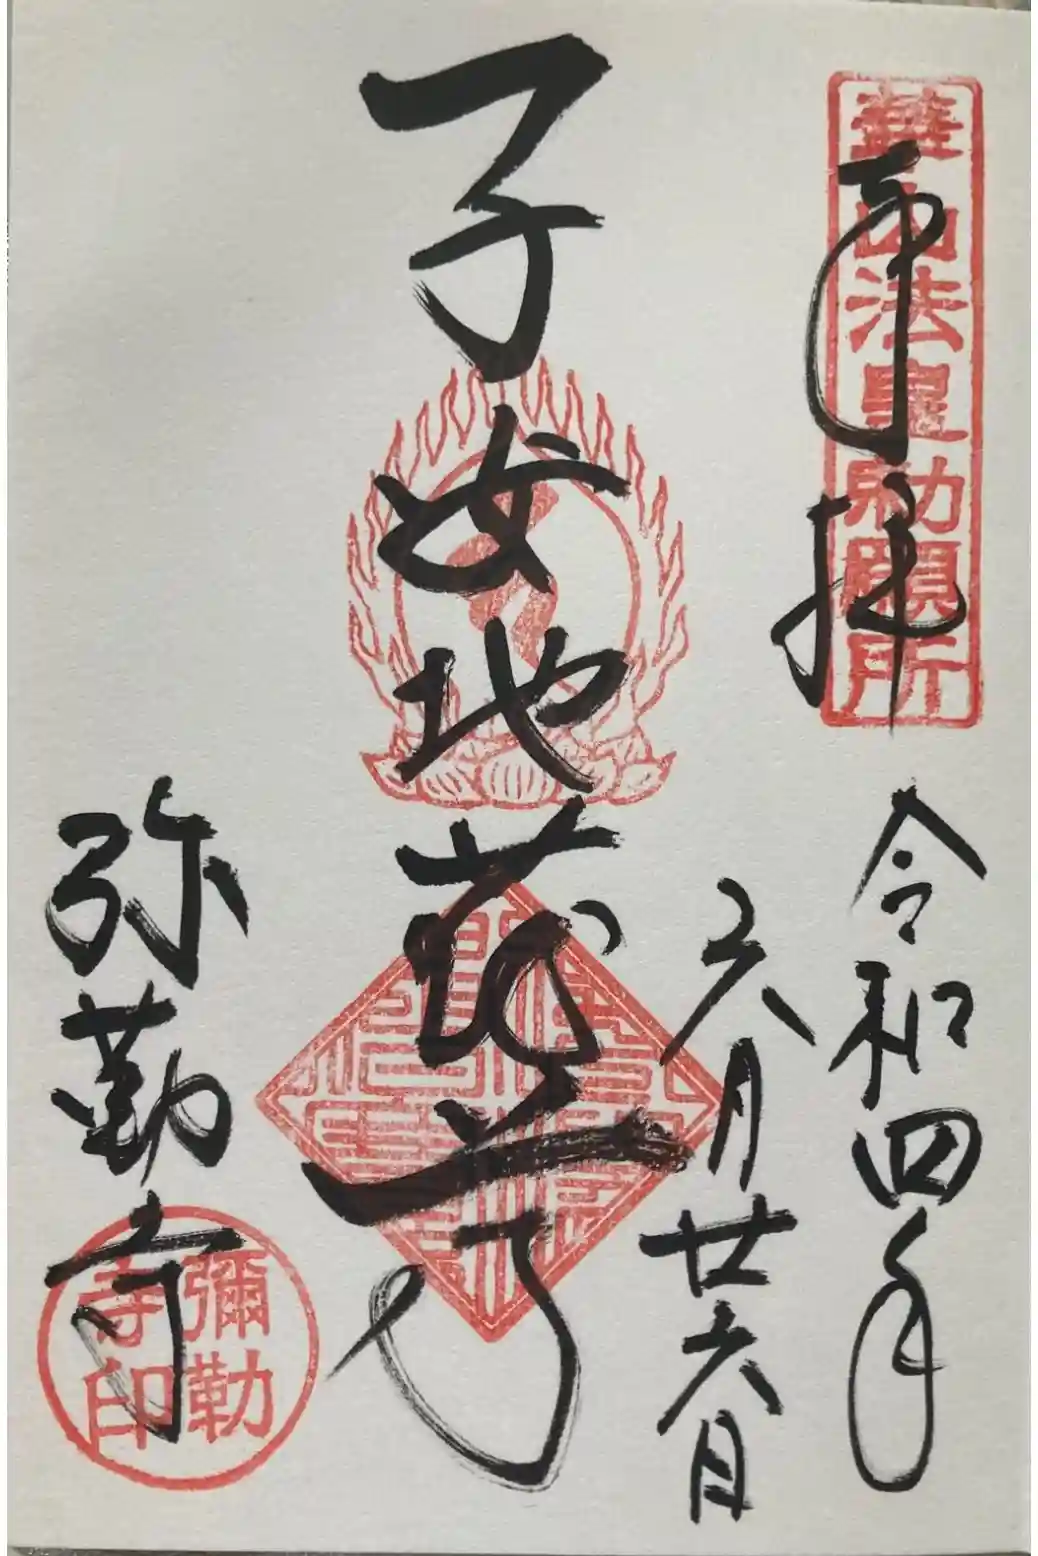 奉拝
華山法皇勅願所
令和四年
六月廿六日
子女地蔵尊
弥勒寺
彌勒
寺印